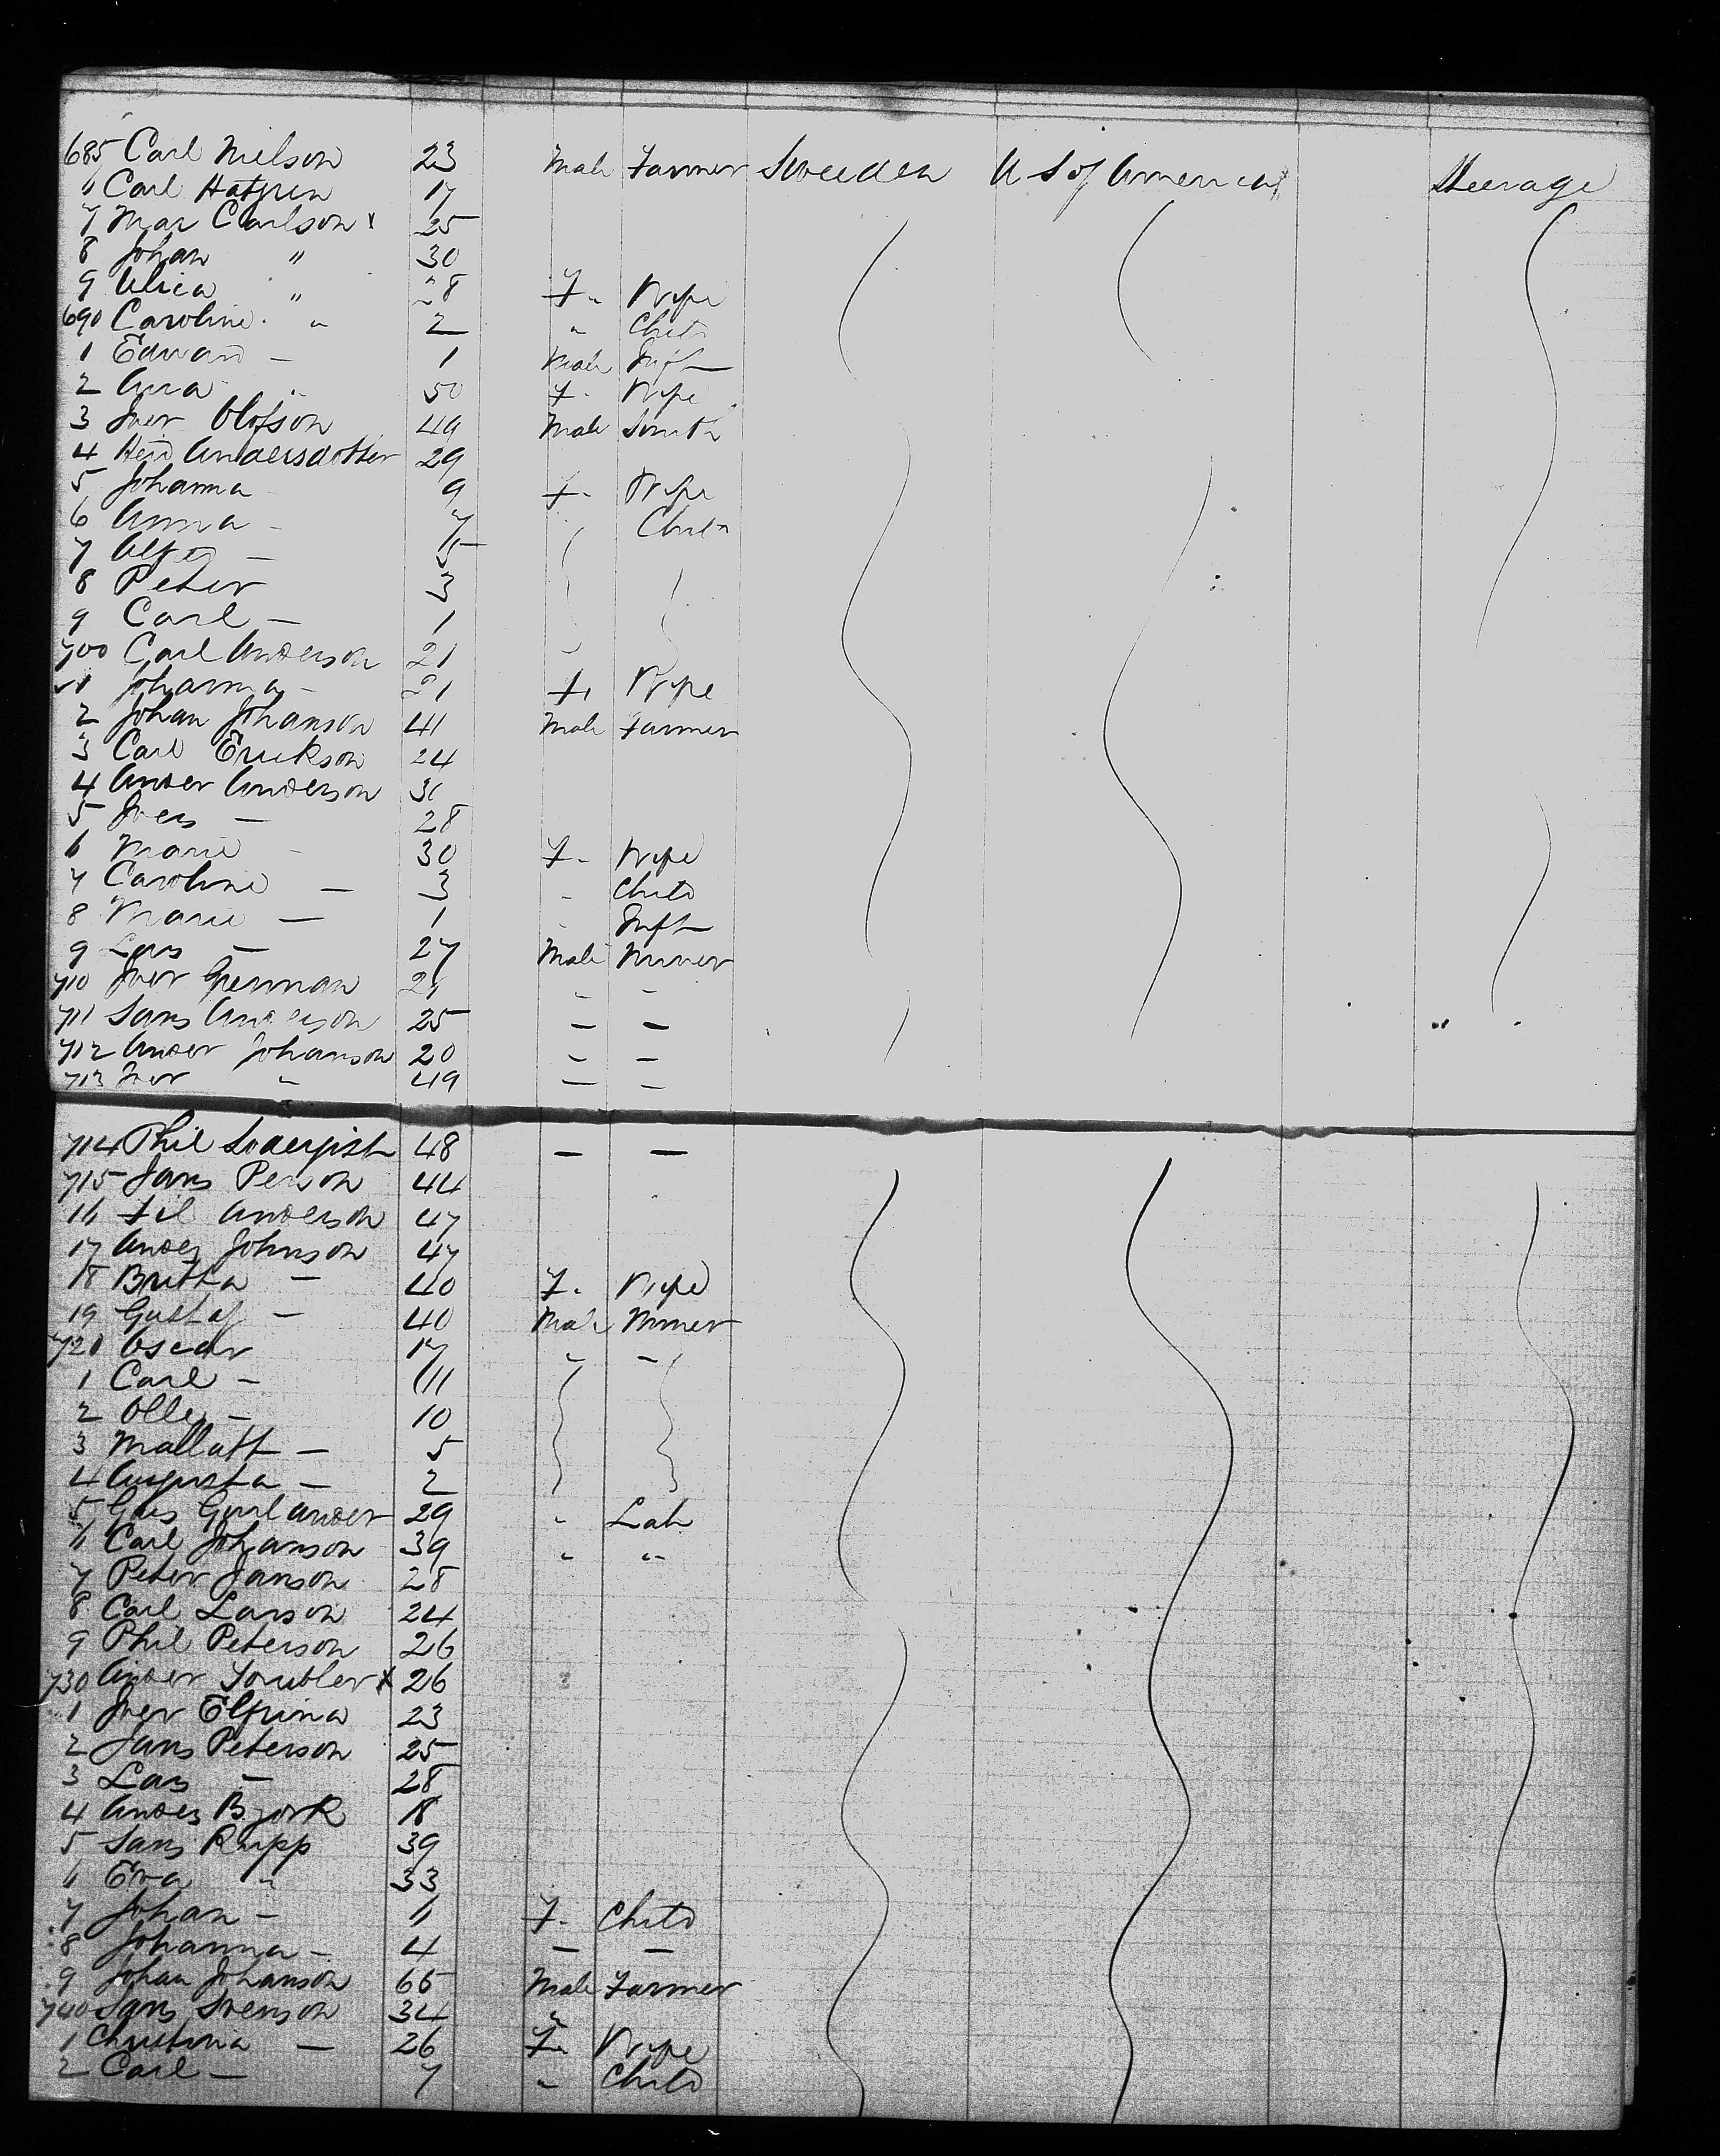 685 Carl Nielson 23 Male Farmer Sweeden U S of America Steerage
6 Carl 17
7 Mar Carlson x 25
8 Johan " 30
9 Ulrica " 28 F. Wife
690 Caroline " 2 " Child
1 Edward — 1 Male Inft
2 Anna " 50 F. Wife
3 Iver Olofson 49 Male Smith
4 Andersdotter 29
5 Johanna 9 F. Wife
6 Anna - 7 Child
7 — 5
8 Peter 3
9 Carl — 1
700 Carl Anderson 21
1 Johanna - 21 F. Wife
2 Johan Johanson 41 Male Farmer
3 Carl Erickson 24
4 Ander Anderson 31
5 — 28
6 Marie - 30 F. Wife
7 Caroline — 3 - Child
8 Marie — 1 - Inft
9 Lars — 27 Male Miner
710 Iver 21 - -
711 Anderson 25 — —
712 Ander Johanson 20 — —
713 Iver " 49 — —
714 Phil 48 — —
715 Jans Person 44
16 Anderson 47
17 Anders Johnson 47
18 Britta — 40 F. Wife
19 Gustaf — 40 Male Miner
720 Oscar 17 " —
1 Carl — 11
2 Olle — 10
3 — 5
4 Augusta — 2
5 29 " Lab
6 Carl Johanson 39 " "
7 Peter Janson 28
8 Carl Larson 24
9 Phil Peterson 26
730 Ander x 26
1 Iver 23
2 Jans Peterson 25
3 Lars — 28
4 Anders Bjork 18
5 Rupp 39
6 Eva " 33
7 Johan — F. Child
8 Johanna — 4 — —
9 Johan Johanson Male Farmer
740 Svenson 34 "
1 Christina — 26 F. Wife
2 Carl — 7 " Child